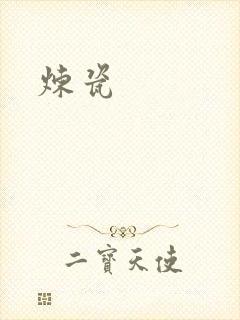 炼瓷
二寶天使